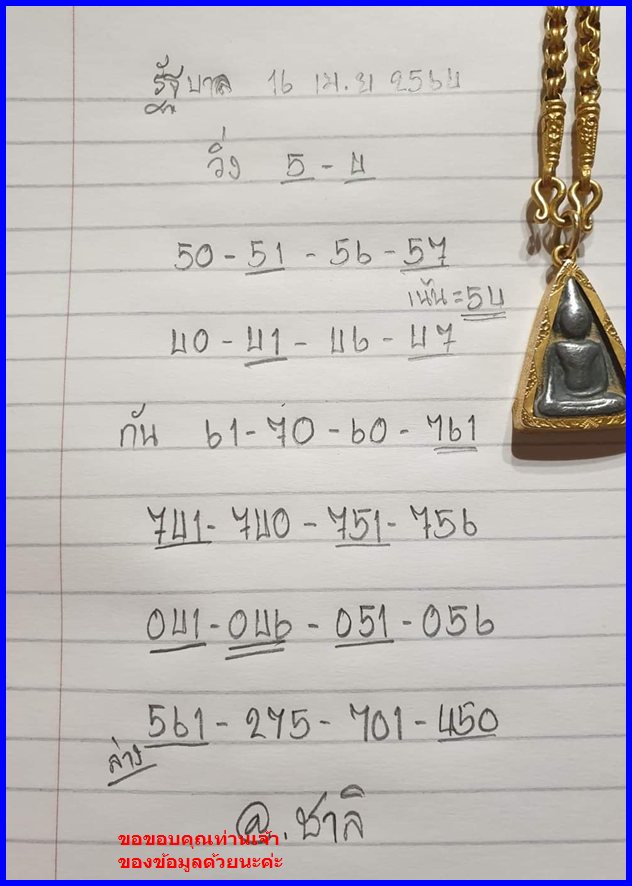 รัฐบาล 16 เม.ย 2564
วิ่ง 5 - 4
50 - 51 - 56 - 57
เน้น = 54
40 - 41 - 46 - 47
กัน 61 - 70 - 60 - 761
741 - 740 - 751 - 756
041 - 046 - 051 - 056
561 - 275 - 701 - 450
ล่าง
@. ชาลี
ขอขอบคุณท่านเจ้า
ของข้อมูลด้วยนะค่ะ